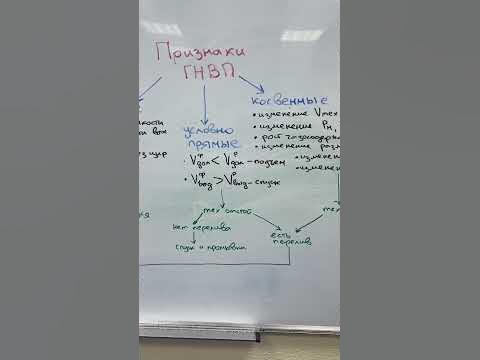 Признаки
ГНВП
косвенные
• изменение Vмех
• изменение Рн,
• рост газосодерж
• изменение раз
• изменени
• изменен
условно
прямые
• Vфдол < Vрдол - подъем
• Vфвыд > Vрвыд - спуск
тех отстой
нет перелива
есть
перелив
спуск и промывка
тех